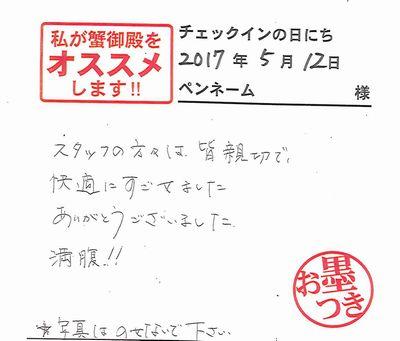 私が蟹御殿を
オススメ
します!!
チェックインの日にち
2017年5月12日
ペンネーム 様
スタッフの方々は、皆親切で、
快適にすごせました
ありがとうございました。
満腹!!
お墨つき
★写真はのせないで下さい。